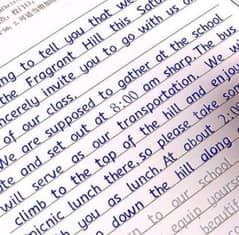 ng to tell you that we
the Fragrant Hill this Satu
ncerely invite you to go with us on
of our class.
We are supposed to gather at the school
te and set out at 8:00 am sharp. The bus
will serve as our transportation. We w
climb to the top of the hill and enjoy
picnic lunch there, so please take som
h you as lunch. At about 2:
down the hill along
n to our school
equip yourse
beautif